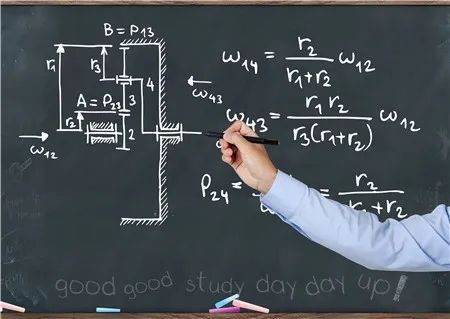 B = P13
r1
r3
4
ω43
A = P23
3
r2
2
ω12
ω14 = r2 / (r1 + r2) ω12
ω43 = r1 r2 / r3(r1 + r2) ω12
P24 = = r2 / r1 + r2
good good study day day up!